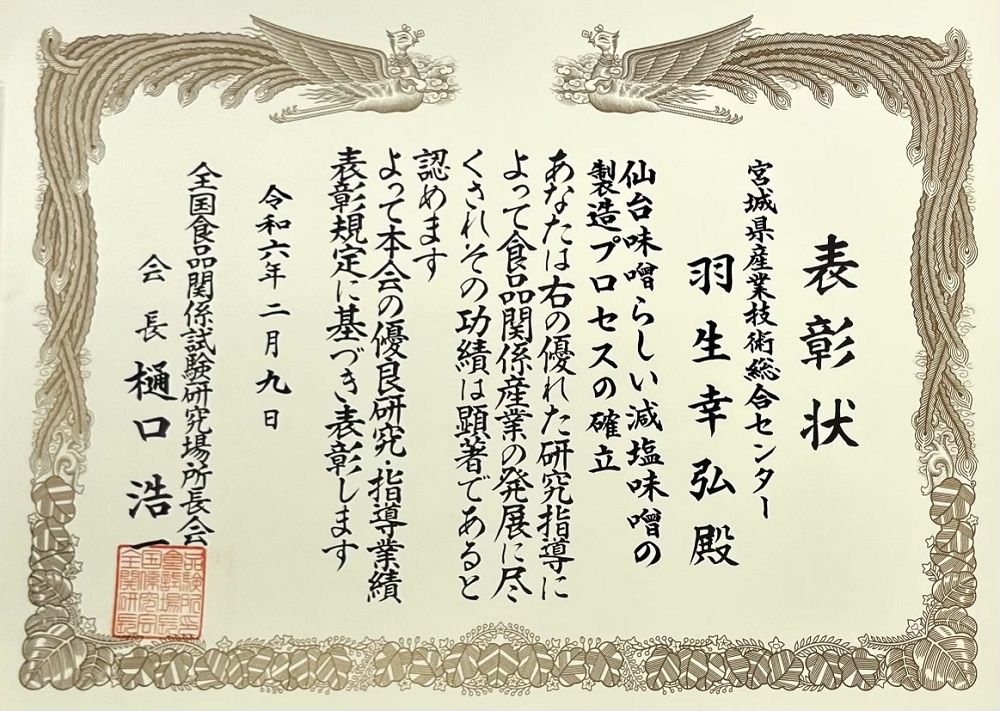 表彰状
宮城県産業技術総合センター
羽生幸弘殿
仙台味噌らしい減塩味噌の
製造プロセスの確立
あなたは右の優れた研究指導に
よって食品関係産業の発展に尽
くされその功績は顕著であると
認めます
よって本会の優良研究・指導業績
表彰規定に基づき表彰します
令和六年二月九日
全国食品関係試験研究場所長会
会長樋口浩一